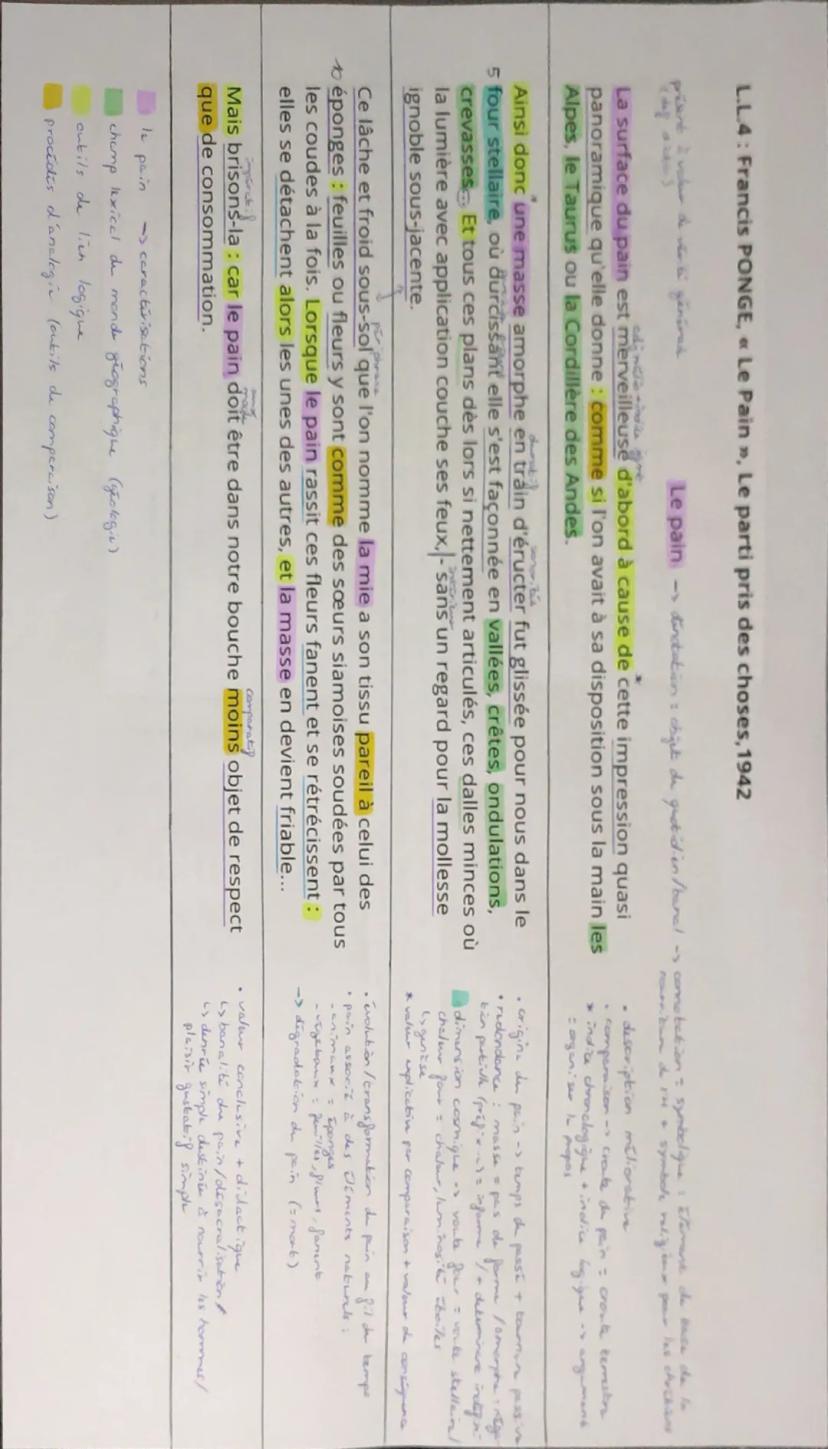 L.L.4 : Francis PONGE, « Le Pain », Le parti pris des choses,1942
Le pain → dénotation : objet du quotidien/banal → connotation = symbolique : élément de base de la
nourriture de l'H + symbole religieux pour les chrétiens
présent à valeur de vérité générale
adj mélio
La surface du pain est merveilleuse d'abord à cause de cette impression quasi
panoramique qu'elle donne : comme si l'on avait à sa disposition sous la main les
Alpes, le Taurus ou la Cordillère des Andes.
• description méliorative
• comparaison → croute du pain = croute terrestre
* indice chronologique + indice logique → argument
= organiser le propos
Ainsi donc une masse amorphe en train d'éructer fut glissée pour nous dans le
5 four stellaire, où durcissant elle s'est façonnée en vallées, crêtes, ondulations,
crevasses... Et tous ces plans dès lors si nettement articulés, ces dalles minces où
la lumière avec application couche ses feux, - sans un regard pour la mollesse
ignoble sous-jacente.
• origine du pain → temps du passé + tournure passive
• redondance : masse = pas de forme / amorphe
dimension cosmique → voute four = voute stellaire/
chaleur four = chaleur, luminosité étoiles
↳ genèse
* valeur explicative par comparaison + valeur de conséquence
périphrase
Ce lâche et froid sous-sol que l'on nomme la mie a son tissu pareil à celui des
10 éponges : feuilles ou fleurs y sont comme des sœurs siamoises soudées par tous
les coudes à la fois. Lorsque le pain rassit ces fleurs fanent et se rétrécissent :
elles se détachent alors les unes des autres, et la masse en devient friable...
• évolution/transformation du pain au fil du temps
• pain associé à des éléments naturels :
- animaux = éponges
- végétaux = feuilles, fleurs, fanent
→ dégradation du pain (= mort)
impératif
comparatif
Mais brisons-la : car le pain doit être dans notre bouche moins objet de respect
que de consommation.
• valeur conclusive + didactique
↳ banalité du pain/désacralisation
↳ denrée simple destinée à nourrir les hommes/
plaisir gustatif simple
le pain → caractérisations
champ lexical du monde géographique (géologie)
outils de lien logique
procédés d'analogie (outils de comparaison)